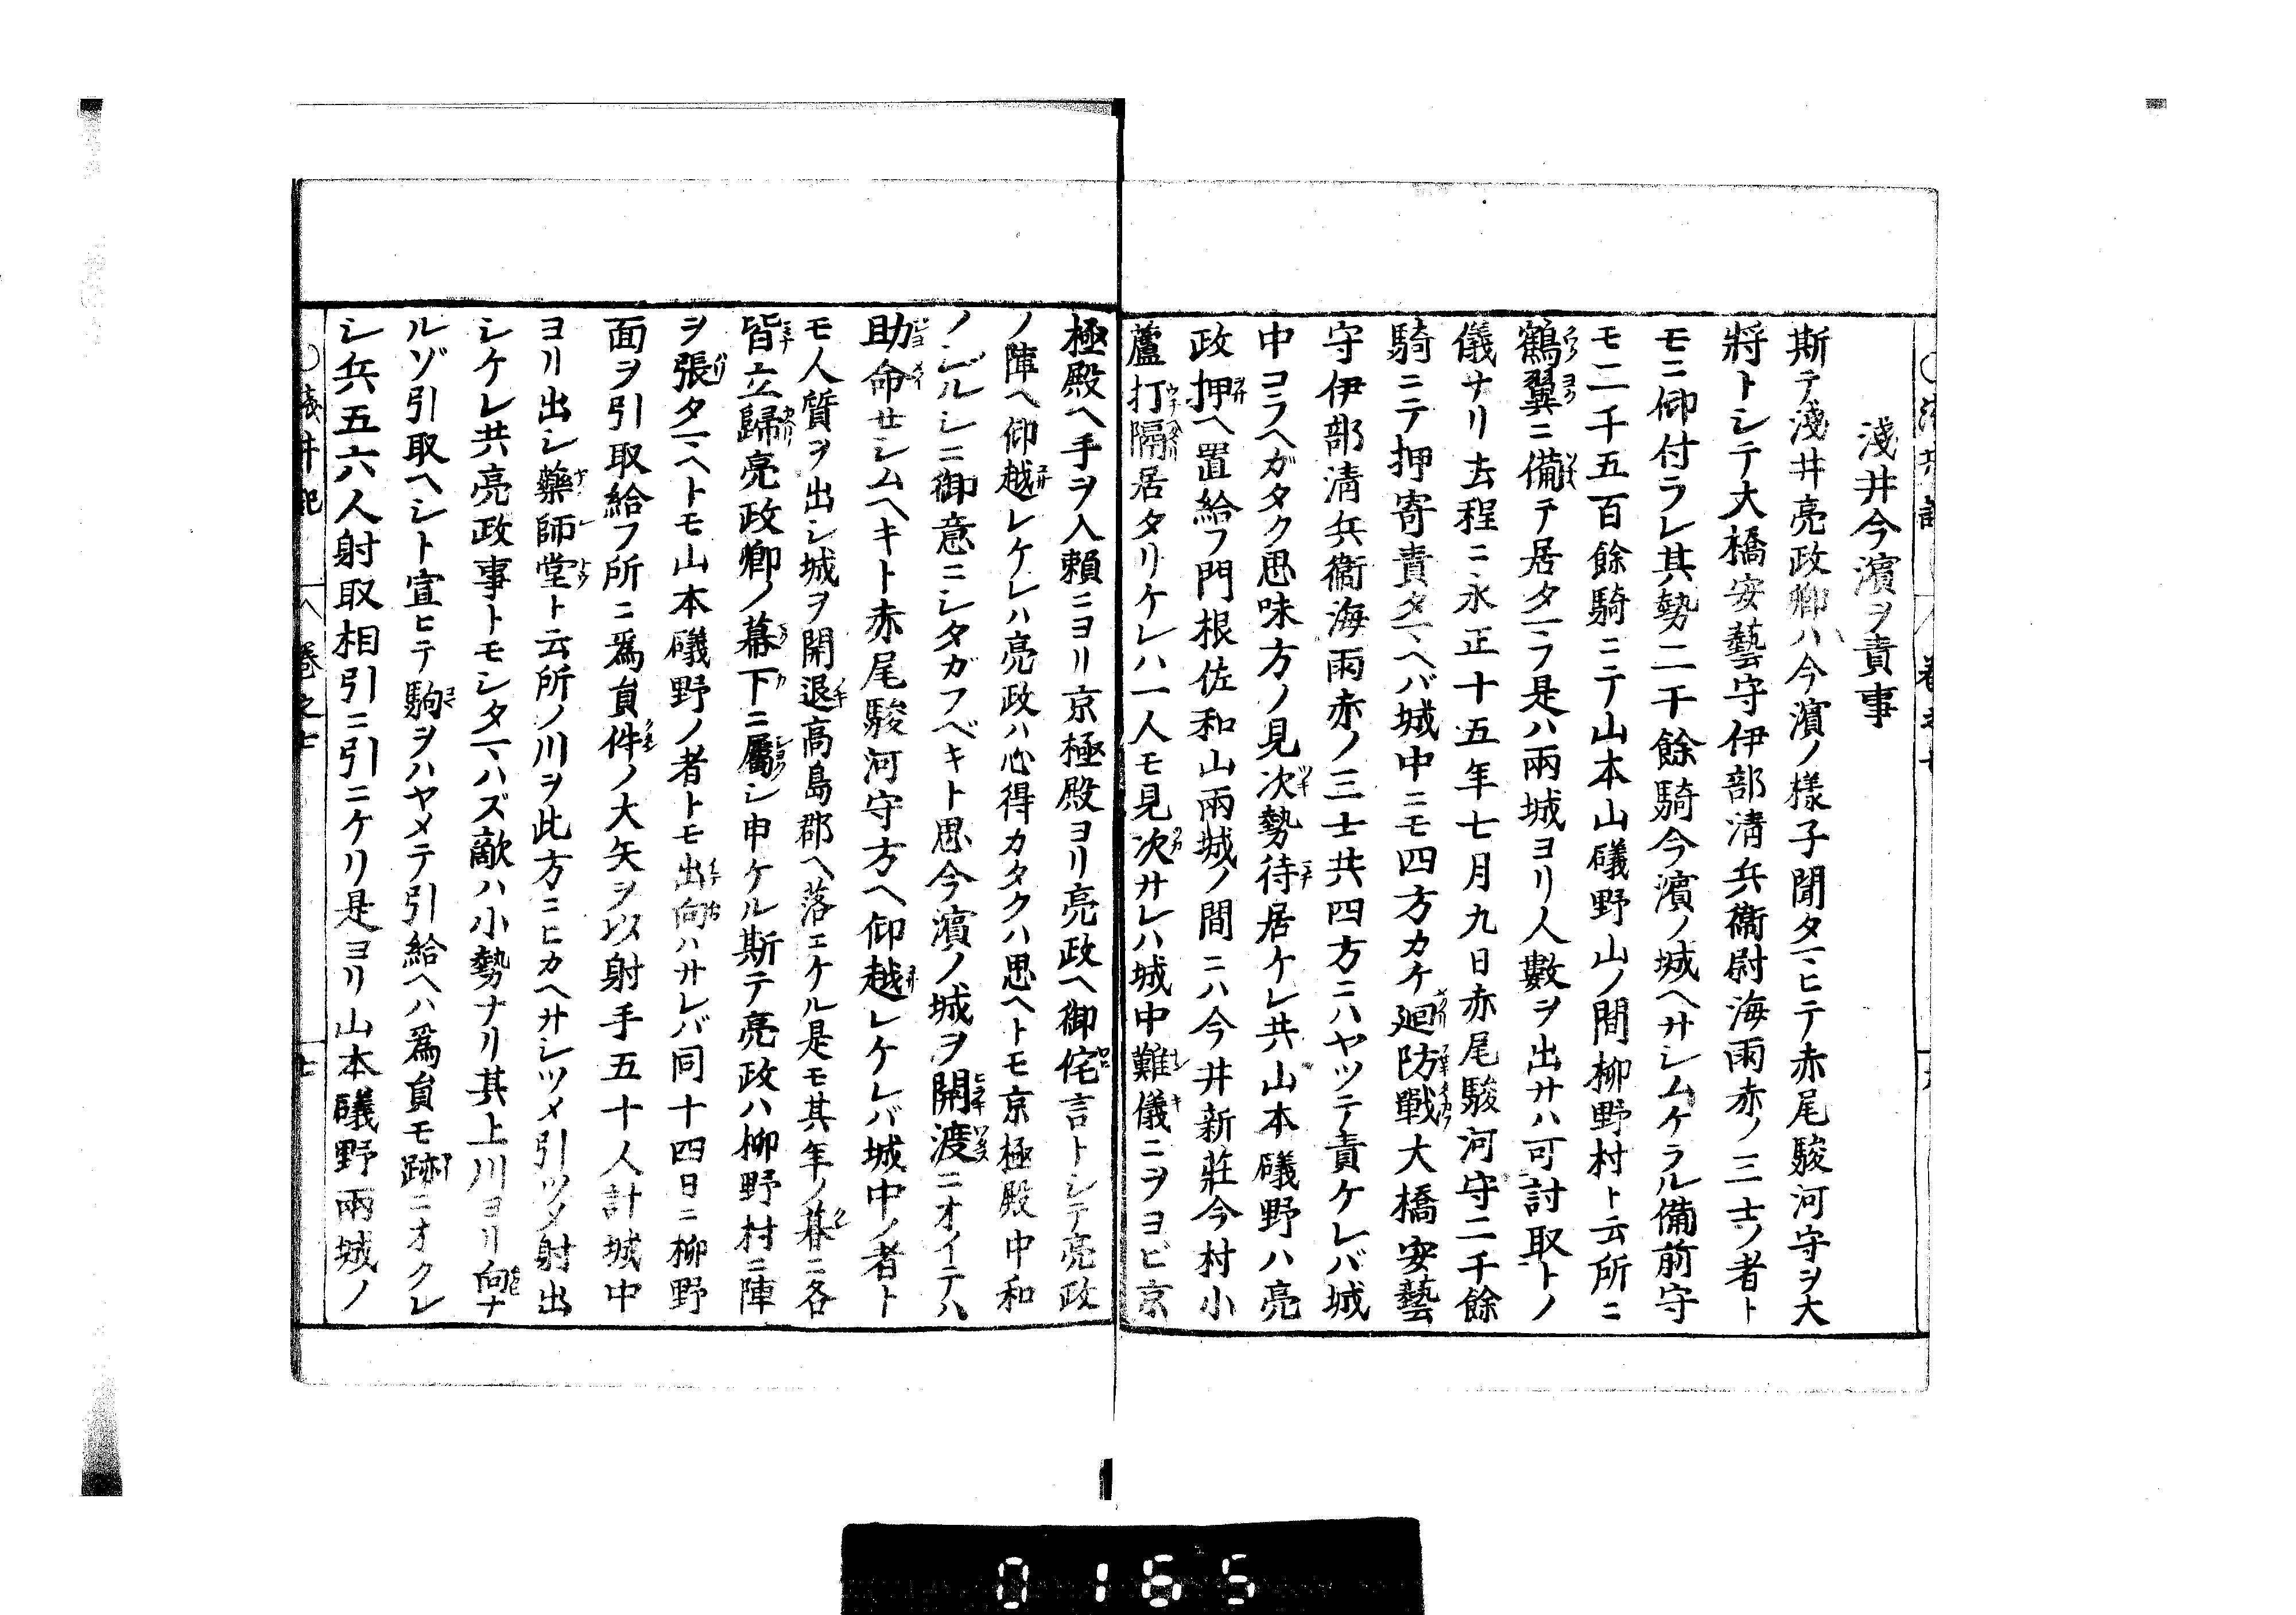 淺井今濱ヲ責事
斯テ淺井亮政卿ハ今濱ノ樣子聞タマヒテ赤尾駿河守ヲ大
將トシテ大橋安藝守伊部清兵衞尉海雨赤ノ三士ノ者ト
モニ仰付ラレ其勢二千餘騎今濱ノ城ヘサシムケラル備前守
モ二千五百餘騎ニテ山本山礒野山ノ間柳野村ト云所ニ
鶴翼ニ備テ居タマフ是ハ兩城ヨリ人數ヲ出サハ可討取トノ
儀ナリ去程ニ永正十五年七月九日赤尾駿河守二千餘
騎ニテ押寄責タマヘバ城中ニモ四方カケ廻防戰大橋安藝
守伊部清兵衞海雨赤ノ三士共四方ニハヤツテ責ケレバ城
中コラヘガタク思味方ノ見次勢待居ケレ共山本礒野ハ亮
政押ヘ置給フ門根佐和山兩城ノ間ニハ今井新莊今村小
蘆打隔居タリケレハ一人モ見次サレハ城中難儀ニヲヨビ京
極殿ヘ手ヲ入賴ニヨリ京極殿ヨリ亮政ヘ御侘言トシテ亮政
ノ陣ヘ仰越レケレハ亮政ハ心得カタクハ思ヘトモ京極殿中和
ノシルシニ御意ニシタガフベキト思今濱ノ城ヲ開渡ニオイテハ
助命セシムヘキト赤尾駿河守方ヘ仰越レケレバ城中ノ者ト
モ人質ヲ出シ城ヲ開退高島郡ヘ落エケル是モ其年ノ暮ニ各
皆立歸亮政卿ノ幕下ニ屬シ申ケル斯テ亮政ハ柳野村ニ陣
ヲ張タマヘトモ山本礒野ノ者トモ出向ハサレバ同十四日ニ柳野
面ヲ引取給フ所ニ爲員件ノ大矢ヲ以射手五十人計城中
ヨリ出シ藥師堂ト云所ノ川ヲ此方ニヒカヘサシツメ引ツメ射出
シケレ共亮政事トモシタマハズ敵ハ小勢ナリ其上川ヨリ向ナ
ルゾ引取ヘシト宣ヒテ駒ヲハヤメテ引給ヘハ爲員モ跡ニオクレ
シ兵五六人射取相引ニ引ニケリ是ヨリ山本礒野兩城ノ
淺井記 卷之七 七